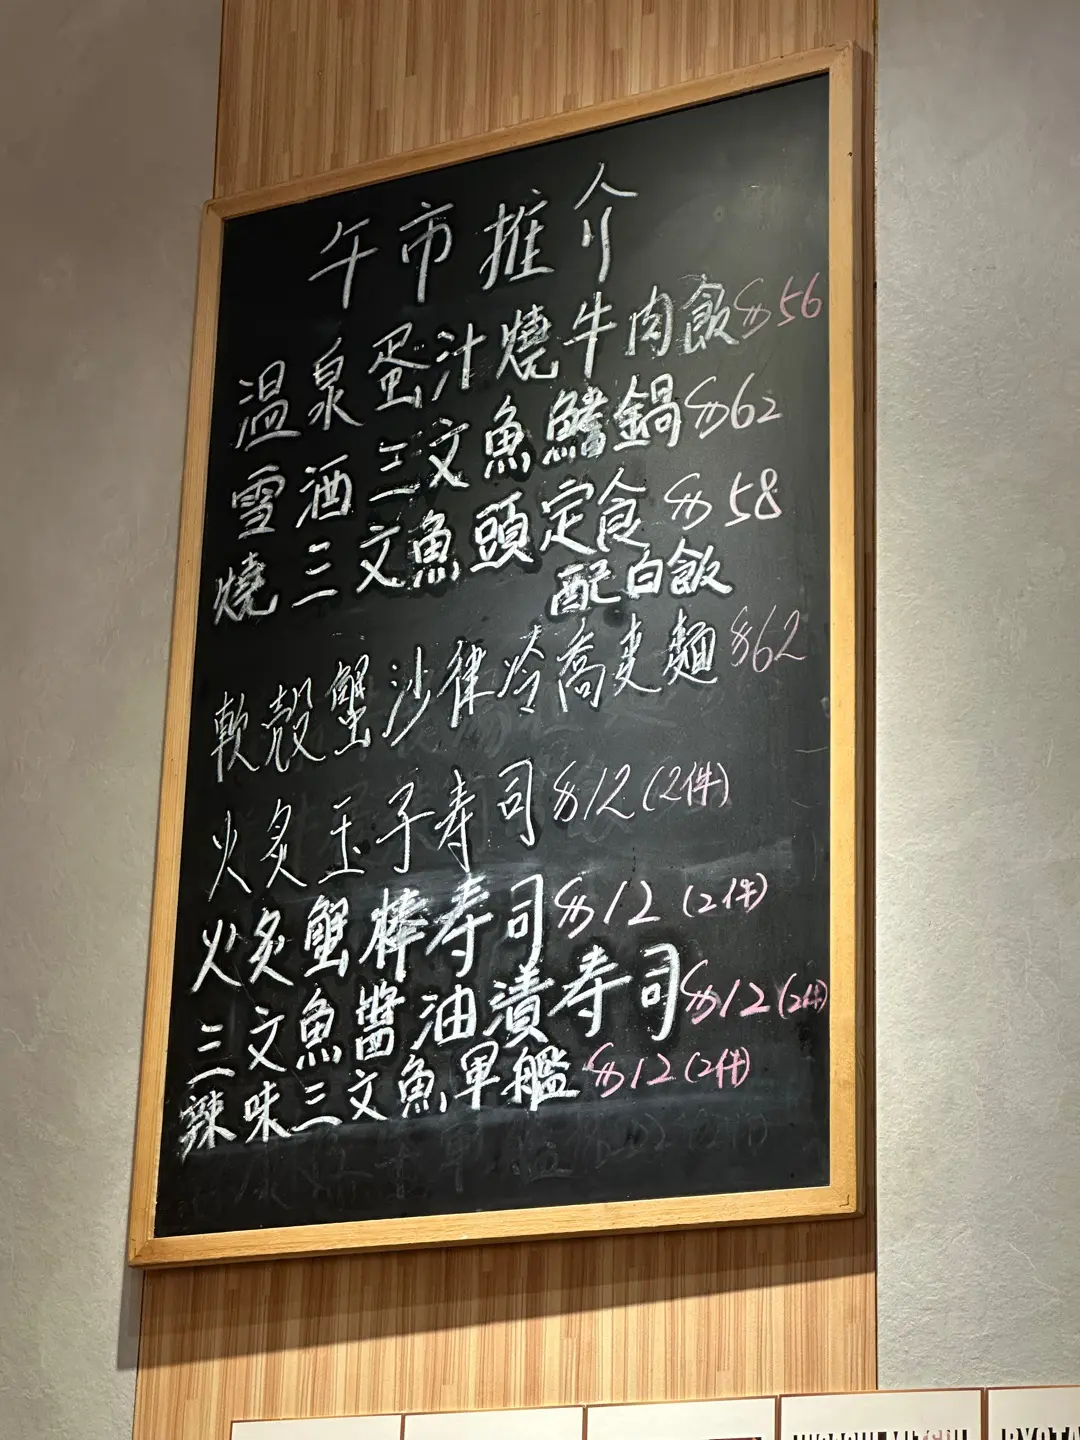 午市推介
溫泉蛋汁燒牛肉飯 $56
雪酒三文魚鰭鍋 $62
燒三文魚頭定食 $58
配白飯
軟殼蟹沙律冷喬麥麵 $62
火炙玉子寿司 $12 (2件)
火炙蟹棒寿司 $12 (2件)
三文魚醬油漬寿司 $12 (2件)
辣味三文魚軍艦 $12 (2件)